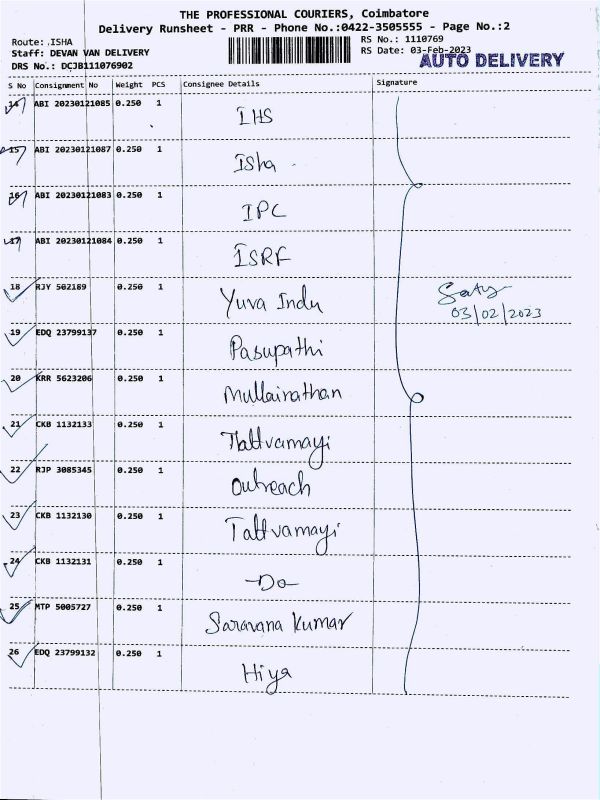 THE PROFESSIONAL COURIERS, Coimbatore
Delivery Runsheet - PRR - Phone No.:0422-3505555 - Page No.:2
Route: .ISHA
RS No.: 1110769
Staff: DEVAN VAN DELIVERY
RS Date: 03-Feb-2023
AUTO DELIVERY
DRS No.: DCJB111076902
S No Consignment No Weight PCS Consignee Details Signature
14 ABI 20230121085 0.250 1 IHS
15 ABI 20230121087 0.250 1 Isha
16 ABI 20230121083 0.250 1 IPC
17 ABI 20230121084 0.250 1 ISRF
18 RJY 502189 0.250 1 Yuva Indu
Saty
03/02/2023
19 EDQ 23799137 0.250 1 Pasupathi
20 KRR 5623206 0.250 1 Mullainathan
21 CKB 1132133 0.250 1 Tattvamayi
22 RJP 3085345 0.250 1 Outreach
23 CKB 1132130 0.250 1 Tattvamayi
24 CKB 1132131 0.250 1 -Do-
25 MTP 5005727 0.250 1 Saravana Kumar
26 EDQ 23799132 0.250 1 Hiya